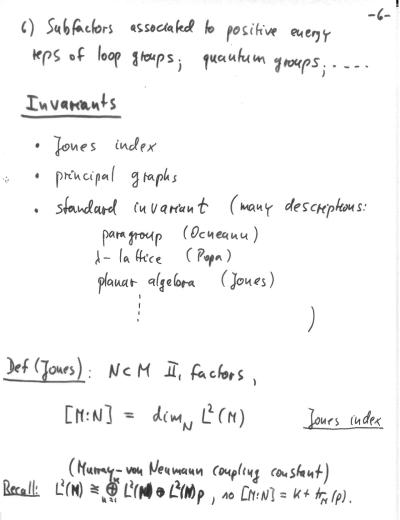 -6-
6) Subfactors associated to positive energy
reps of loop groups; quantum groups; .....
Invariants
• Jones index
• principal graphs
• standard invariant (many descriptions:
paragroup (Ocneanu)
λ-lattice (Popa)
planar algebra (Jones)
)
Def (Jones): N⊂M II₁ factors,
[M:N] = dim_N L²(M) Jones index
(Murray-von Neumann coupling constant)
Recall: L²(M) ≅ ⊕ L²(N) ⊕ L²(N)p, so [M:N] = k + tr_N(p).